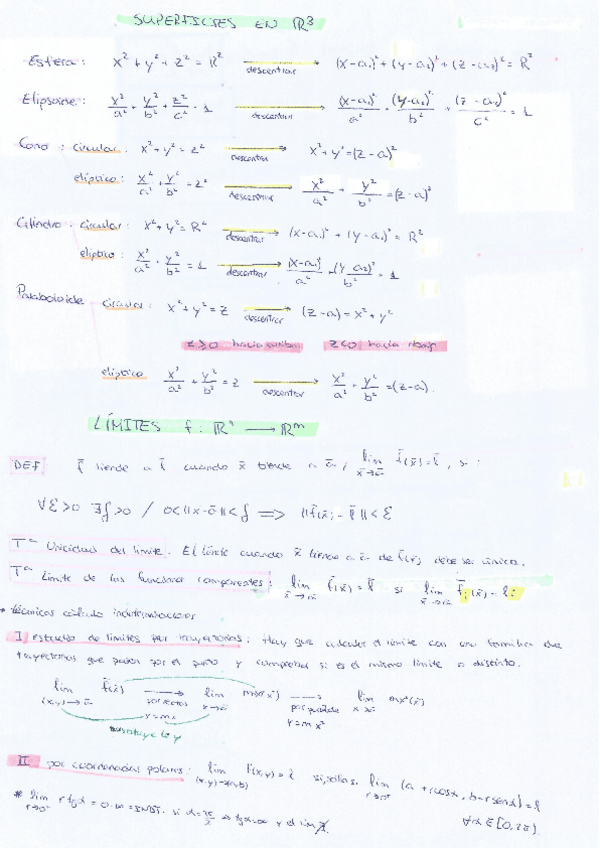 SUPERFICIES EN ℝ³
Esfera: x² + y² + z² = R² descentrar (x-a₁)² + (y-a₂)² + (z-a₃)² = R²
Elipsoide: x²/a² + y²/b² + z²/c² = 1 descentrar (x-a₁)²/a² + (y-a₂)²/b² + (z-a₃)²/c² = 1
Cono: circular: x² + y² = z² descentrar x² + y² = (z-a)²
elíptico: x²/a² + y²/b² = z² descentrar x²/a² + y²/b² = (z-a)²
Cilindro: circular: x² + y² = R² descentrar (x-a₁)² + (y-a₂)² = R²
elíptico: x²/a² + y²/b² = 1 descentrar (x-a₁)²/a² + (y-a₂)²/b² = 1
Paraboloide circular: x² + y² = z descentrar (z-a) = x² + y²
z≥0 hacia arriba z<0 hacia abajo
elíptico x²/a² + y²/b² = z descentrar x²/a² + y²/b² = (z-a).
LÍMITES f: ℝⁿ → ℝᵐ
DEF f̄ tiende a l̄ cuando x̄ tiende a ā, lim x̄→ā f̄(x̄) = l̄, si:
∀ε>0 ∃δ>0 / 0<||x-ā||<δ ⟹ ||f̄(x̄) - l̄||<ε
Tª Unicidad del límite. El límite cuando x̄ tiende a ā de f̄(x̄) debe ser único.
Tª Límite de las funciones componentes: lim x̄→ā f̄(x̄) = l̄ si lim x̄→ā f̄ᵢ(x̄) = lᵢ
* técnicas cálculo indeterminaciones
I estudio de límites por trayectorias: Hay que calcular el límite con una familia de
trayectorias que pasen por el punto y comprobar si es el mismo límite o distinto.
lim (x,y)→ā f̄(x̄) por rectas y=mx lim x→ā por parábola y=mx² lim x→ā
sustituye la y
II por coordenadas polares: lim (x,y)→(a,b) f(x,y) = l si, sólo si. lim r→0⁺ (a + rcosα, b + rsenα) = l
∀α∈[0,2π).
* lim r→0⁺ r tgα = 0·∞ = INDT. si α=π/2 ⇒ tgα=∞ y el lim ∄.